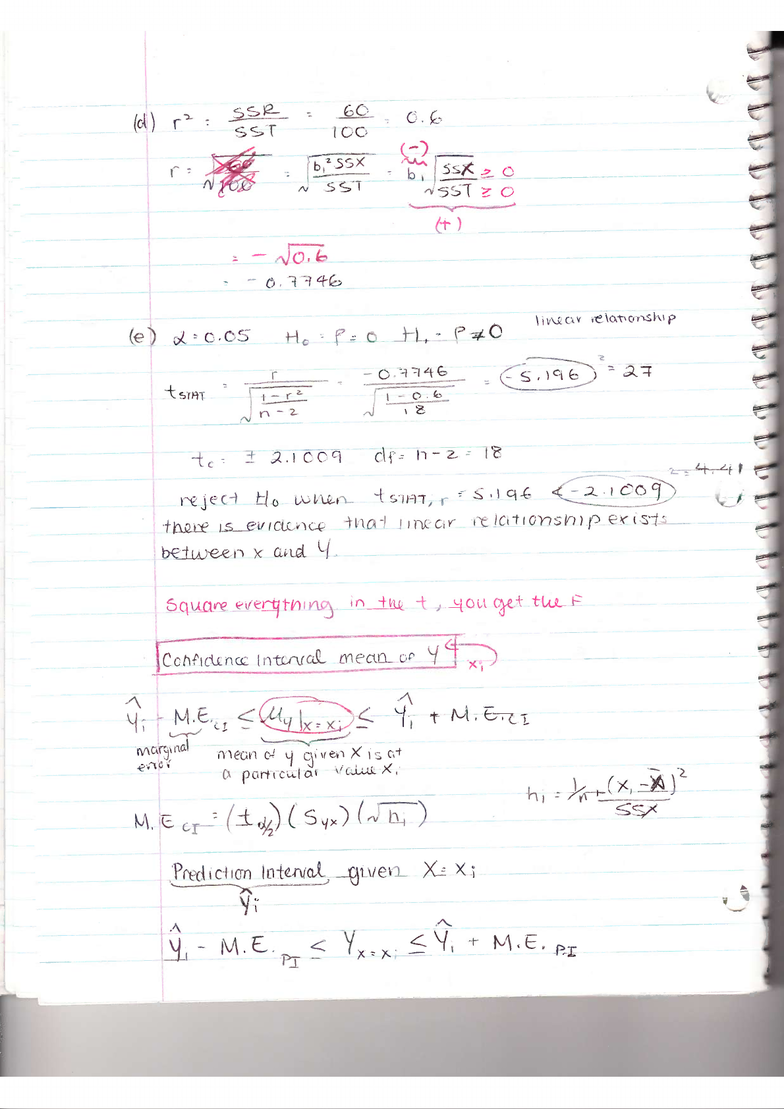 (d) r² = SSR/SST = 60/100 = 0.6
r = √(60/100) = √(b₁² SSX/SST) = b₁ √(SSX/SST) ≥ 0 ≥ 0
(-)
(+)
= - √0.6
= - 0.7746
(e) α = 0.05 H₀ : ρ = 0 H₁ - ρ ≠ 0 linear relationship
tSTAT = r/√((1-r²)/(n-2)) = -0.7746/√((1-0.6)/18) = (-5.196)² = 27
tc = ± 2.1009 df = n-2 = 18
² = 4.41
reject H₀ when tSTAT, r = 5.196 < -2.1009
there is evidence that linear relationship exists
between x and y.
Square everything in the t, you get the F
Confidence Interval mean of y
xi
Ŷi - M.E.CI ≤ μy|x=xi ≤ Ŷi + M.E.CI
marginal error
mean of y given X is at
a particular value Xi
hi = 1/n + (xi - x̄)²/SSX
M.E CI = (tα/2)(Syx)(√hi)
Prediction Interval given X = xi
Ŷi
Ŷi - M.E.PI ≤ Yx=xi ≤ Ŷi + M.E.P.I